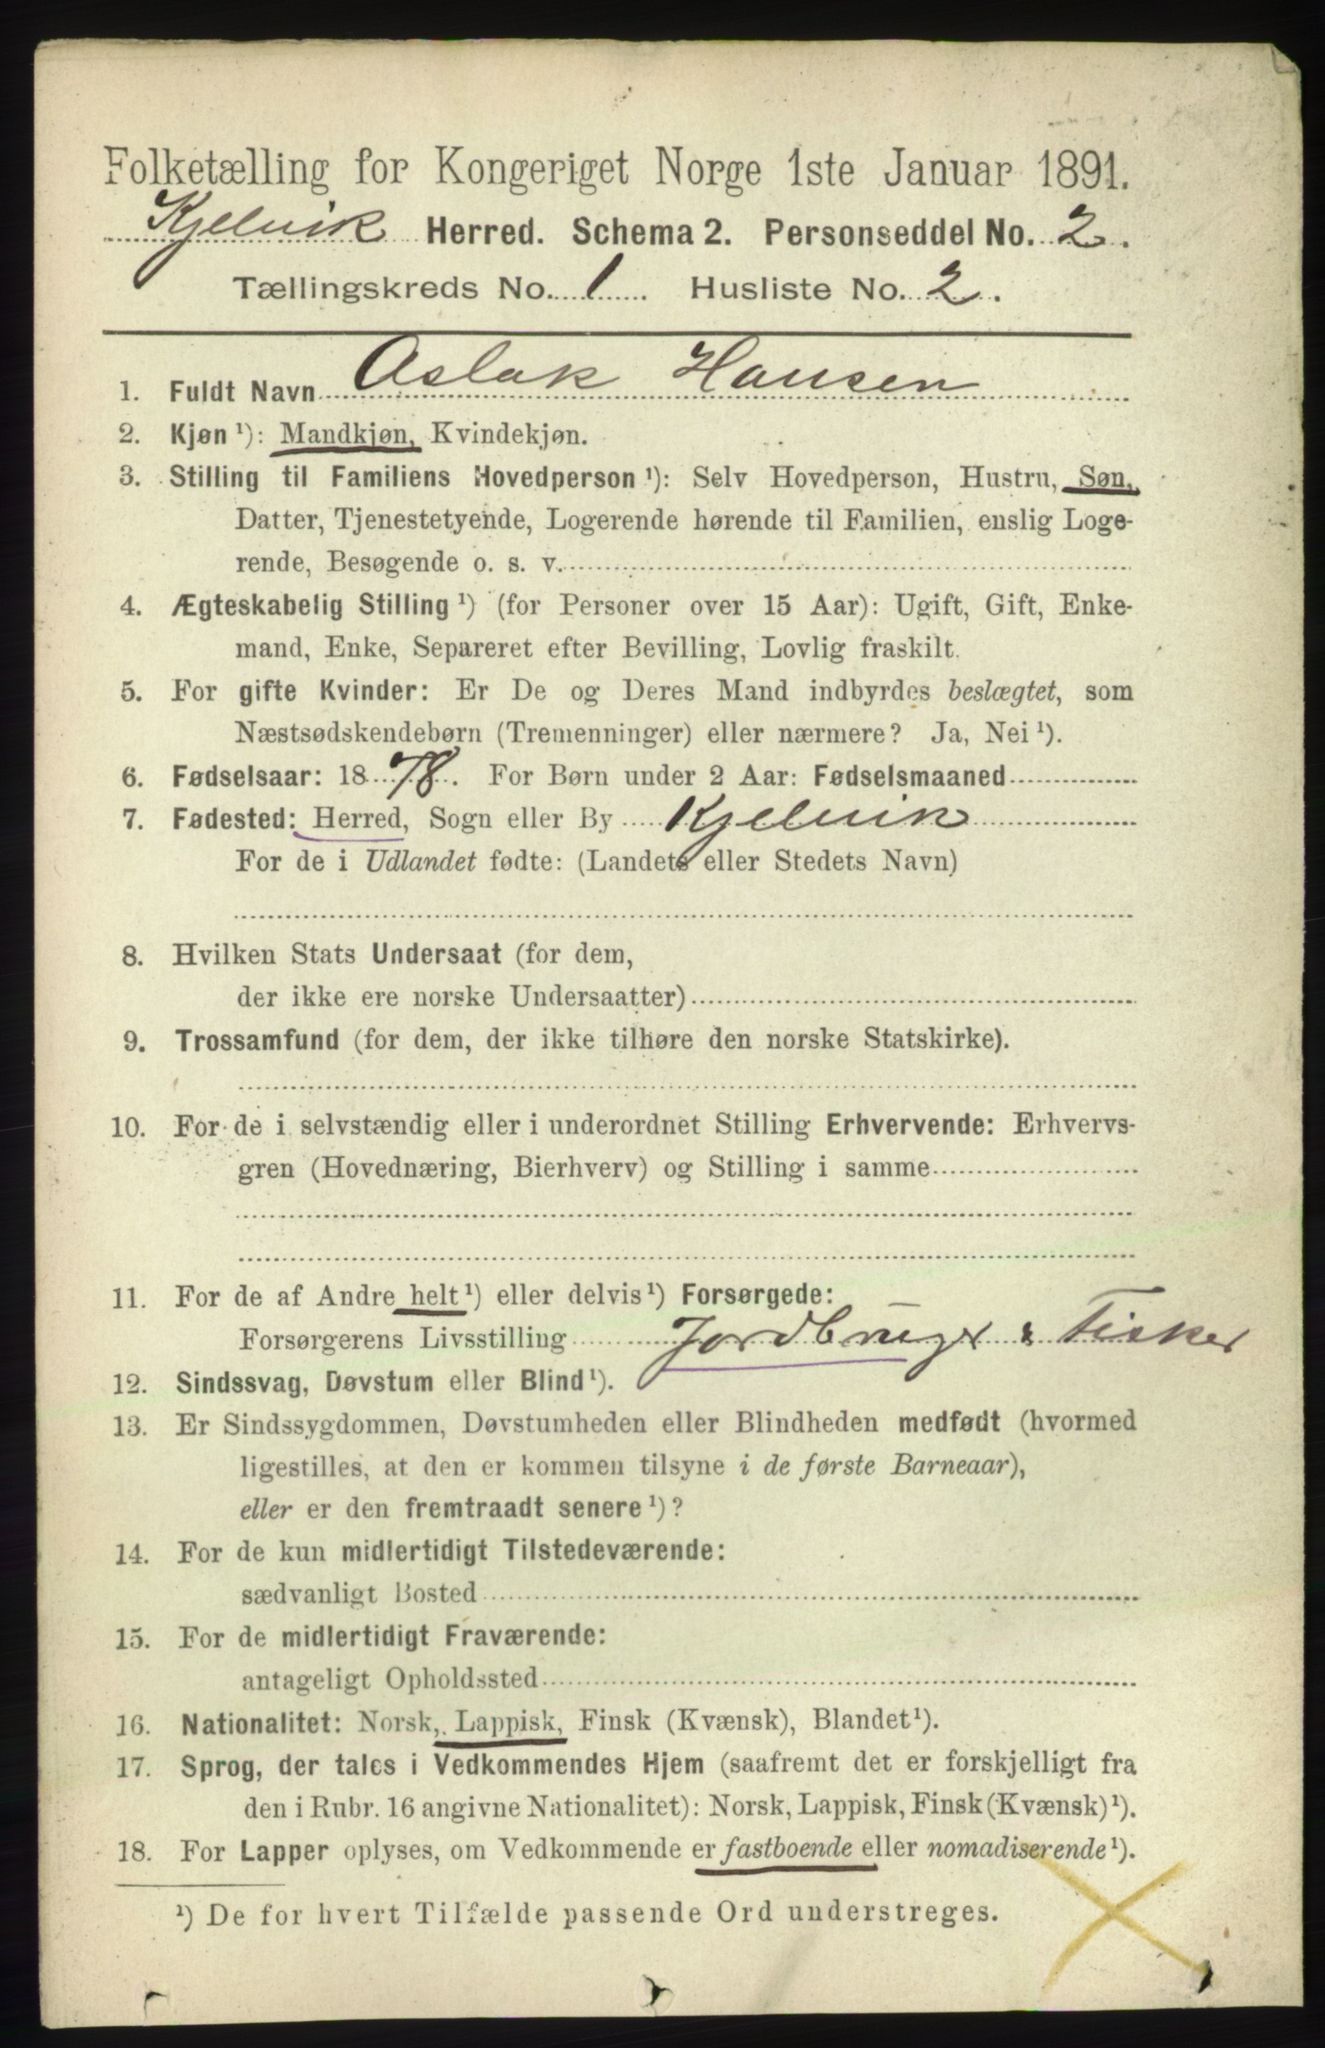 Folketælling for Kongeriget Norge 1ste Januar 1891.
Kjelvik Herred. Schema 2. Personseddel No. 2.
Tællingskreds No. 1 Husliste No. 2.
1. Fuldt Navn Aslak Hansen
2. Kjøn ¹): Mandkjøn, Kvindekjøn.
3. Stilling til Familiens Hovedperson ¹): Selv Hovedperson, Hustru, Søn,
Datter, Tjenestetyende, Logerende hørende til Familien, enslig Loge-
rende, Besøgende o. s. v.
4. Ægteskabelig Stilling ¹) (for Personer over 15 Aar): Ugift, Gift, Enke-
mand, Enke, Separeret efter Bevilling, Lovlig fraskilt.
5. For gifte Kvinder: Er De og Deres Mand indbyrdes beslægtet, som
Næstsødskendebørn (Tremenninger) eller nærmere? Ja, Nei ¹).
6. Fødselsaar: 1878. For Børn under 2 Aar: Fødselsmaaned
7. Fødested: Herred, Sogn eller By Kjelvik
For de i Udlandet fødte: (Landets eller Stedets Navn)
8. Hvilken Stats Undersaat (for dem,
der ikke ere norske Undersaatter)
9. Trossamfund (for dem, der ikke tilhøre den norske Statskirke).
10. For de i selvstændig eller i underordnet Stilling Erhvervende: Erhvervs-
gren (Hovednæring, Bierhverv) og Stilling i samme
11. For de af Andre helt ¹) eller delvis ¹) Forsørgede:
Forsørgerens Livsstilling Jordbruger & Fisker
12. Sindssvag, Døvstum eller Blind ¹).
13. Er Sindssygdommen, Døvstumheden eller Blindheden medfødt (hvormed
ligestilles, at den er kommen tilsyne i de første Barneaar),
eller er den fremtraadt senere ¹)?
14. For de kun midlertidigt Tilstedeværende:
sædvanligt Bosted
15. For de midlertidigt Fraværende:
antageligt Opholdssted
16. Nationalitet: Norsk, Lappisk, Finsk (Kvænsk), Blandet ¹).
17. Sprog, der tales i Vedkommendes Hjem (saafremt det er forskjelligt fra
den i Rubr. 16 angivne Nationalitet): Norsk, Lappisk, Finsk (Kvænsk) ¹).
18. For Lapper oplyses, om Vedkommende er fastboende eller nomadiserende ¹).
¹) De for hvert Tilfælde passende Ord understreges.